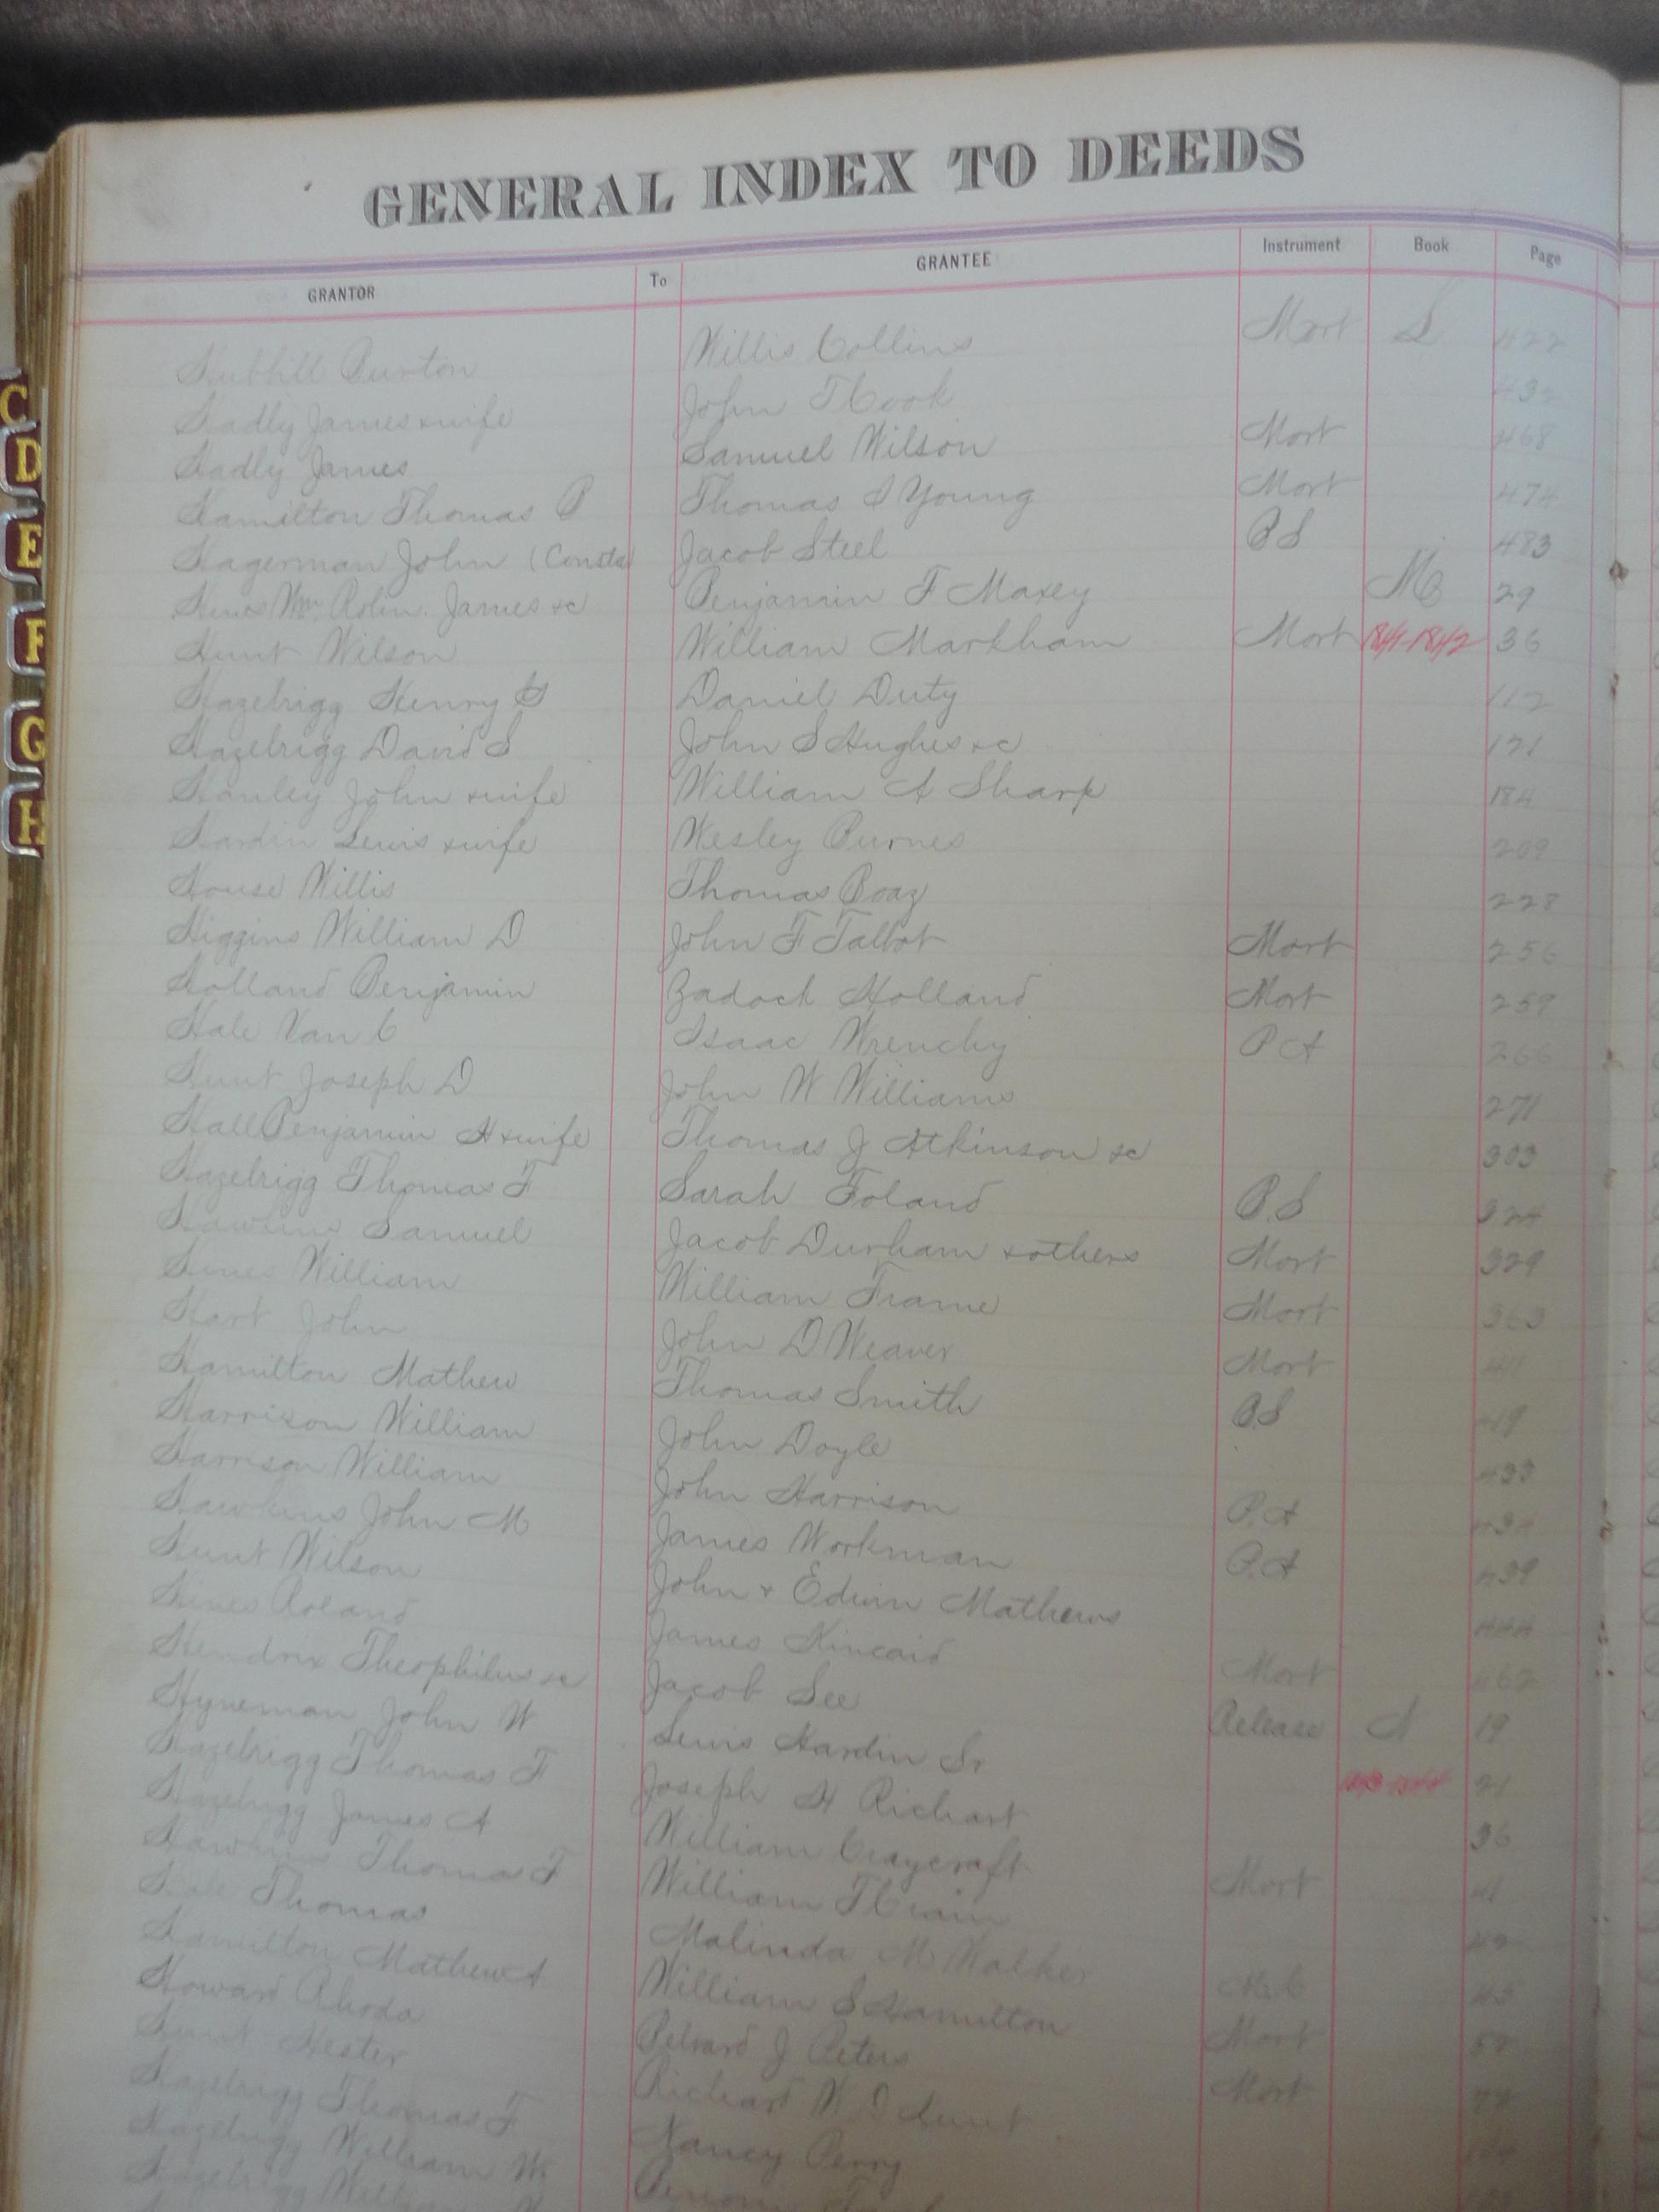 C
D
E
F
G
H
GENERAL INDEX TO DEEDS
GRANTOR To GRANTEE Instrument Book Page
Burton Willis Collins Mort L 422
Hadly James & wife John T Cook 432
Hadly James Samuel Wilson Mort 468
Hamilton Thomas B Thomas I Young Mort 474
Hagerman John (Consta Jacob Steel BS 483
Hines Wm Rolin. James &c Benjamin F Maxey M 29
Hunt Wilson William Markham Mort 1841-1842 36
Hazelrigg Henry G Daniel Duty 112
Hazelrigg David S John S Hughes &c 121
Hanley John & wife William A Sharp 184
Hardin Lewis & wife Wesley Burnes 209
House Willis Thomas Boaz 228
Higgins William D John F Talbot Mort 256
Holland Benjamin Zadock Holland Mort 259
Hale Van C Isaac PA 266
Hunt Joseph D John W Williams 271
Hall Benjamin H & wife Thomas J Atkinson &c 303
Hazelrigg Thomas F Sarah Foland B.S 324
Hawkins Samuel Jacob Durham & others Mort 329
Hines William William Frame Mort 363
Hart John John D Weaver Mort 411
Hamilton Mathew Thomas Smith BS 419
Harrison William John Doyle 433
Harrison William John Harrison P.A 434
Hawkins John M James Workman P.A 439
Hunt Wilson John & Edwin Mathews 444
Hines Roland James Kincaid Mort 462
Hendrix Theophilus &c Jacob See Release N 19
Hyneman John W Lewis Hardin Sr 21
Hazelrigg Thomas F Joseph H Richart 36
Hazelrigg James A William Craycraft Mort 41
Hawkins Thomas F William T
Hale Thomas Malinda M Walker
Hamilton Mathew A William S Hamilton Mort
Howard Rhoda J Peters Mort
Hunt Hester Richard W D Hunt
Hazelrigg Thomas F Nancy Perry
Hazelrigg William W
Hazelrigg William